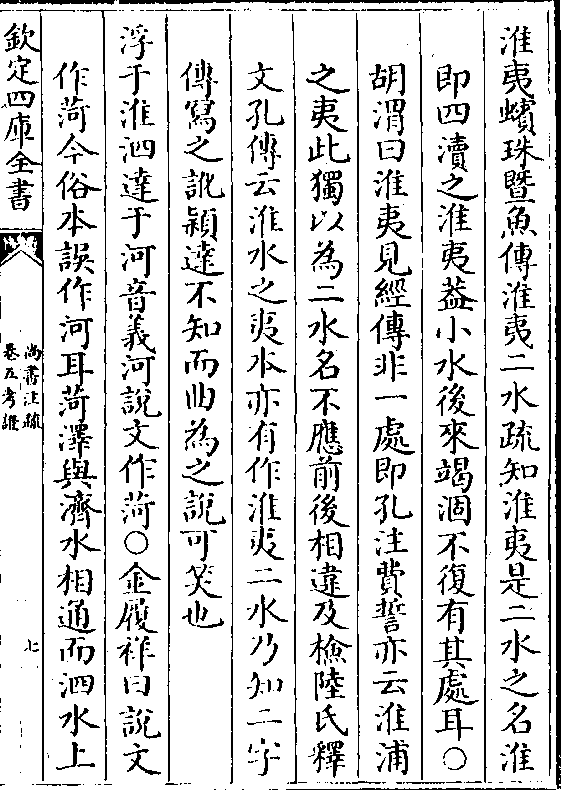 淮夷蠙珠暨魚傳淮夷二水疏知淮夷是二水之名淮
即四瀆之淮夷蓋小水後來竭涸不復有其處耳○
胡渭曰淮夷見經傳非一處即孔注費誓亦云淮浦
之夷此獨以為二水名不應前後相違及檢陸氏釋
文孔傳云淮水之夷本亦有作淮夷二水乃知二字
傳寫之訛穎達不知而曲為之說可笑也
浮于淮泗達于河音義河說文作菏○金履祥曰說文
作菏今俗本誤作河耳菏澤與濟水相通而泗水上
欽定四庫全書
尚書注疏
卷五考證
七